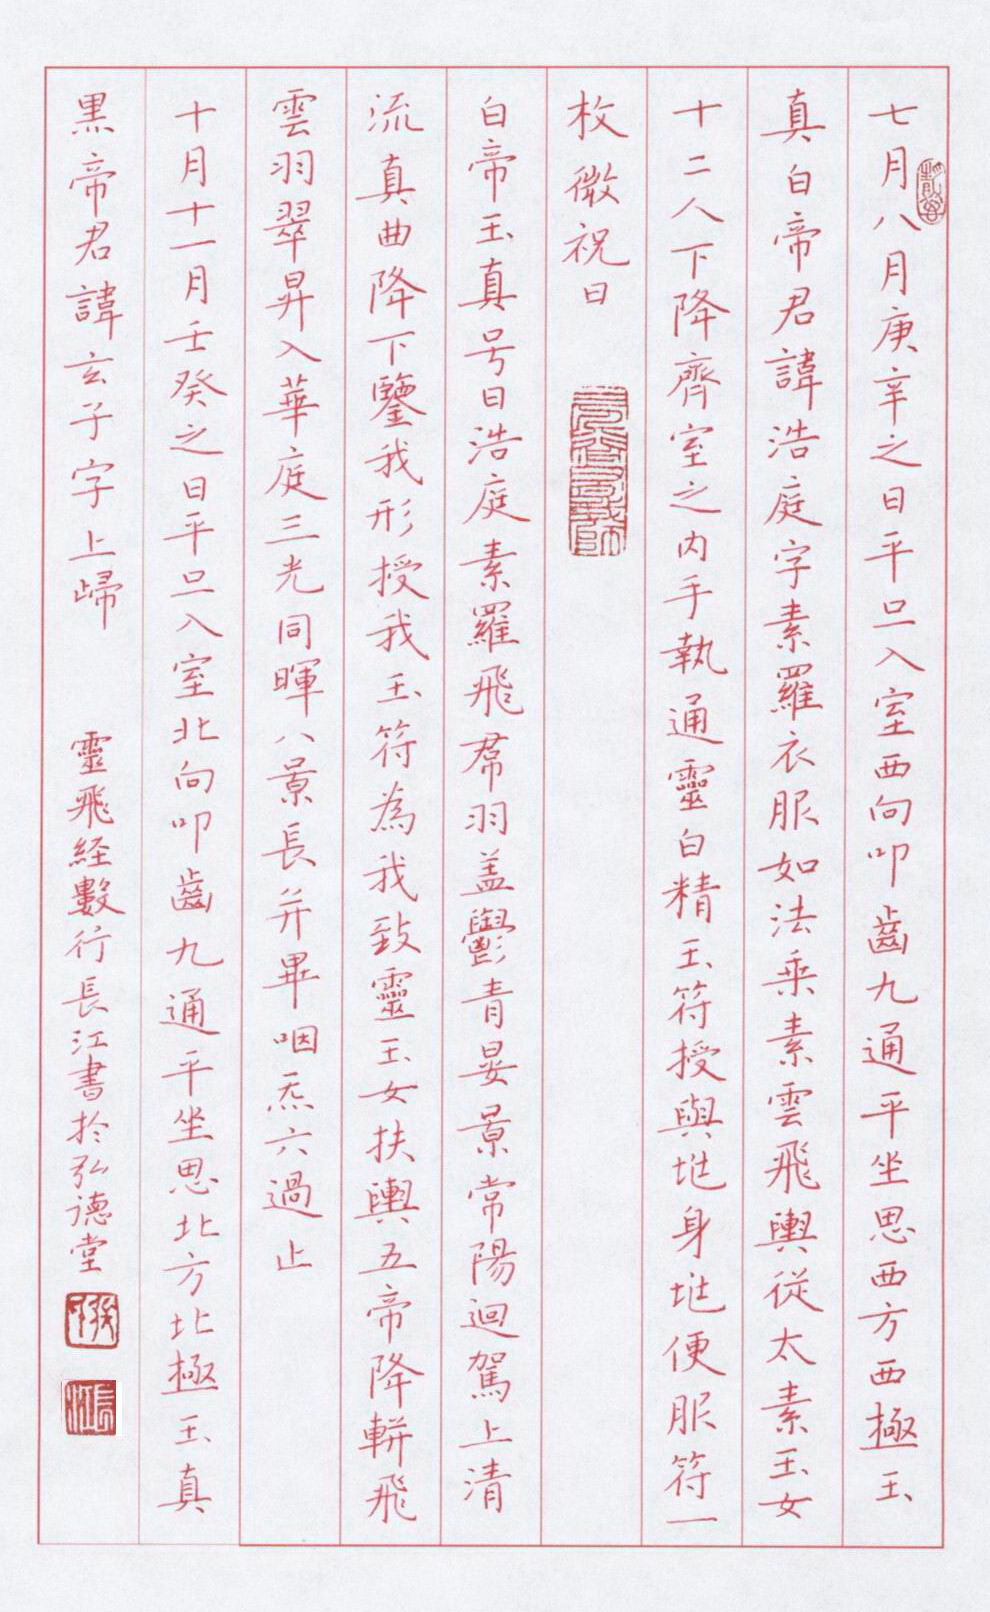 七月八月庚辛之日平旦入室西向叩齒九通平坐思西方西極玉
真白帝君諱浩庭字素羅衣服如法乘素雲飛輿從太素玉女
十二人下降齊室之内手執通靈白精玉符授與𡉄身𡉄便服符一
枚微祝曰
白帝玉真号曰浩庭素羅飛帬羽盖鬱青晏景常陽迴駕上清
流真曲降下鑒我形授我玉符為我致靈玉女扶輿五帝降軿飛
雲羽翠昇入華庭三光同暉八景長并畢咽炁六過止
十月十一月壬癸之日平旦入室北向叩齒九通平坐思北方北極玉真
黒帝君諱玄子字上歸
靈飛経數行長江書於弘德堂
長江